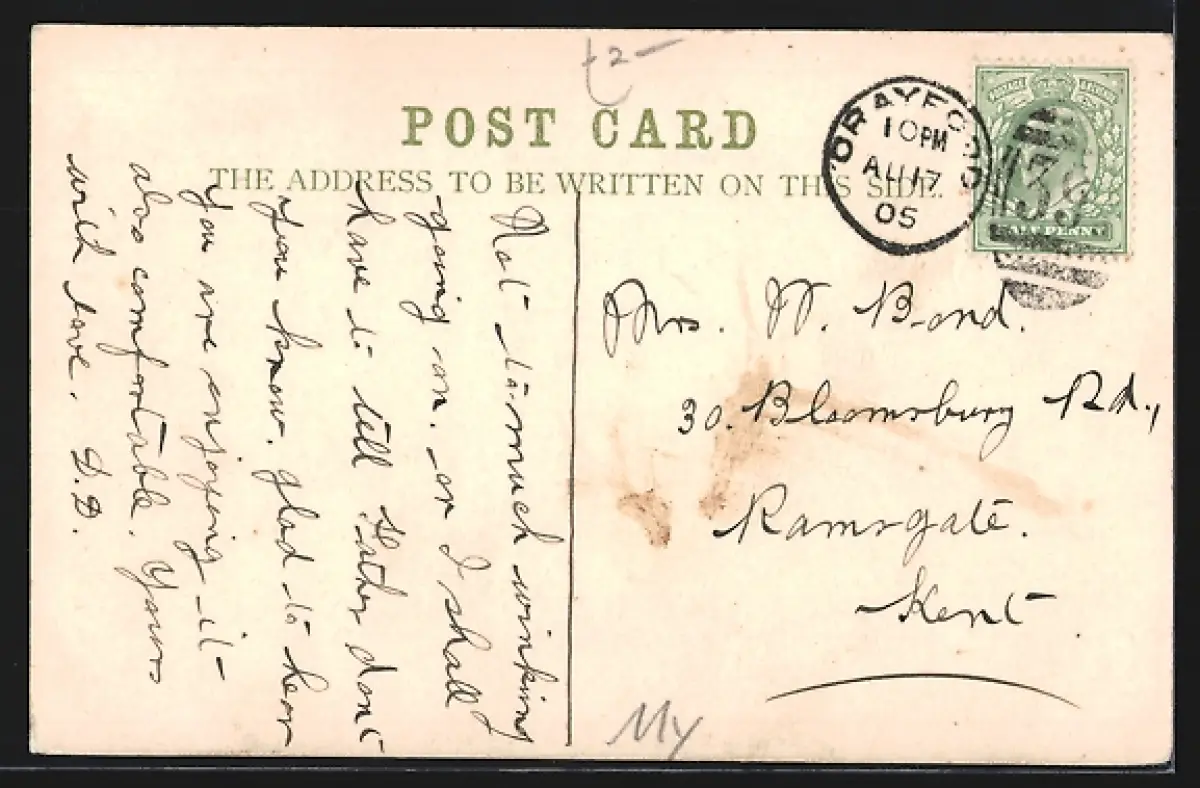 £2-
POST CARD
THE ADDRESS TO BE WRITTEN ON THIS SIDE.
CRAYFORD
10PM
AU 17
05
139
HALF PENNY
Not to much winking
going on. or I shall
have to tell Father dont
you know. glad to hear
you are enjoying it
also comfortable. Yours
with love. D.D.
Mrs. W. Bond.
30. Bloomsbury Rd.,
Ramsgate.
Kent
My